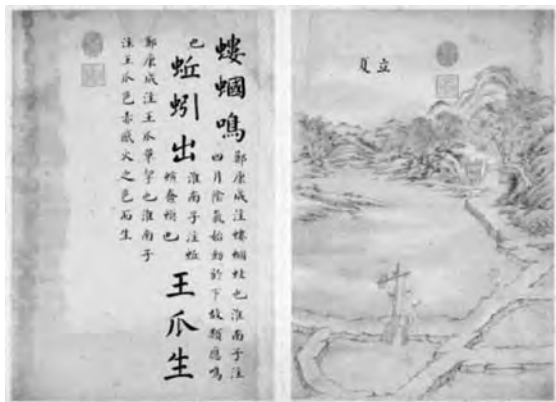 立夏
螻蟈鳴
鄭康成注螻蟈蛙也淮南子注
四月陰氣始動於下故類應鳴
也
蚯蚓出
淮南子注蚯
也
王瓜生
鄭康成注王瓜萆挈也淮南子
注王瓜色赤感火之色而生